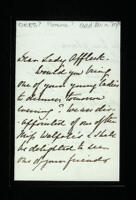 Dear Lady Affleck
Would you bring
one of your young ladies
to dinner tomorrow
evening? We are dis-
appointed of one of the
Miss Walpoles & shall
be delighted to see
one of your friends